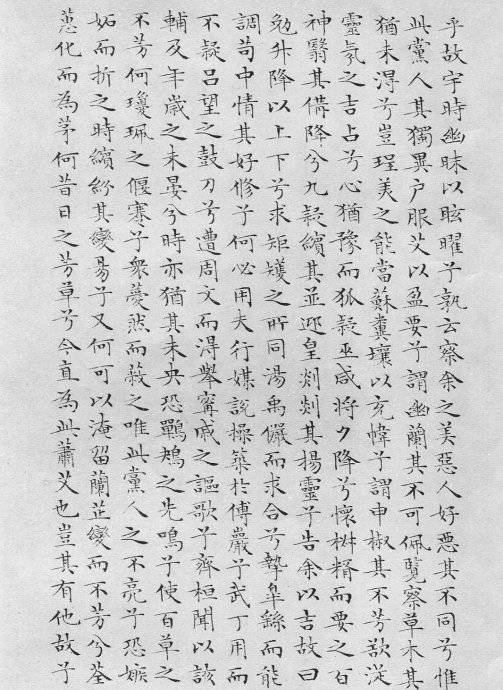 乎故宇時幽昧以眩曜兮孰云察余之美惡人好惡其不同兮惟
此黨人其獨異戶服艾以盈要兮謂幽蘭其不可佩覽察草木其
猶未得兮豈珵美之能當蘇糞壤以充幃兮謂申椒其不芳欲從
靈氛之吉占兮心猶豫而狐疑巫咸將夕降兮懷椒糈而要之百
神翳其備降兮九疑繽其並迎皇剡剡其揚靈兮告余以吉故曰
勉升降以上下兮求矩矱之所同湯禹儼而求合兮摯皋繇而能
調苟中情其好修兮何必用夫行媒說操築於傅巖兮武丁用而
不疑呂望之鼓刀兮遭周文而得舉甯戚之謳歌兮齊桓聞以該
輔及年歲之未晏兮時亦猶其未央恐鷤鴂之先鳴兮使百草之
不芳何瓊珮之偃蹇兮眾薆然而蔽之唯此黨人之不亮兮恐嫉
妬而折之時繽紛其變易兮又何可以淹留蘭芷變而不芳兮荃
蕙化而為茅何昔日之芳草兮今直為此蕭艾也豈其有他故兮